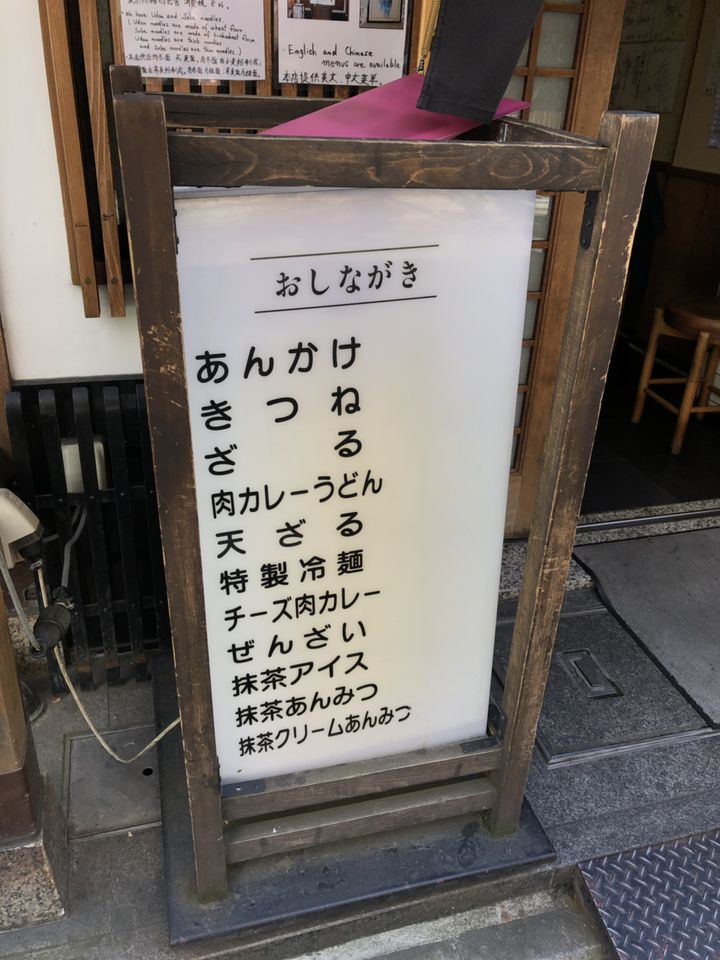 ・We have Udon and Soba noodles
(Udon noodles are made of wheat flour.
Soba noodles are made of buckwheat flour.
Udon noodles are thick noodles
and soba noodles are thin noodles)
・English and Chinese
menus are available
本店提供英文、中文菜单
おしながき
あんかけ
きつね
ざる
肉カレーうどん
天ざる
特製冷麺
チーズ肉カレー
ぜんざい
抹茶アイス
抹茶あんみつ
抹茶クリームあんみつ